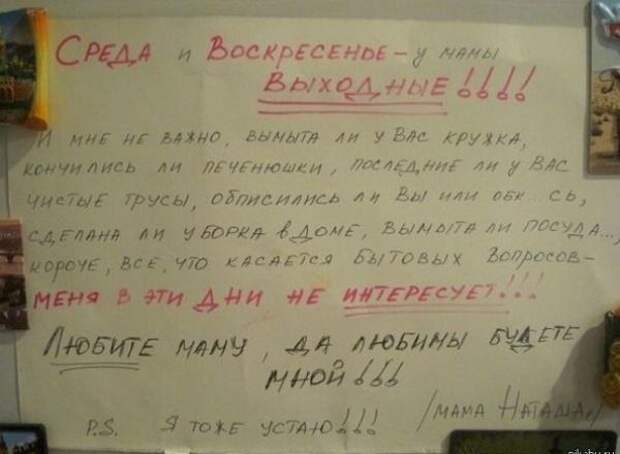 Среда и Воскресенье – у мамы
выходные!!!!
И мне не важно, вымыта ли у вас кружка,
кончились ли печенюшки, последние ли у вас
чистые трусы, обписились ли вы или обк...сь,
сделана ли уборка в доме, вымыта ли посуда...,
короче, все, что касается бытовых вопросов –
меня в эти дни не интересует!!!
Любите маму, да любимы будете
мной!!!
/мама Наташа/
P.S. Я тоже устаю!!!
pikabu.ru